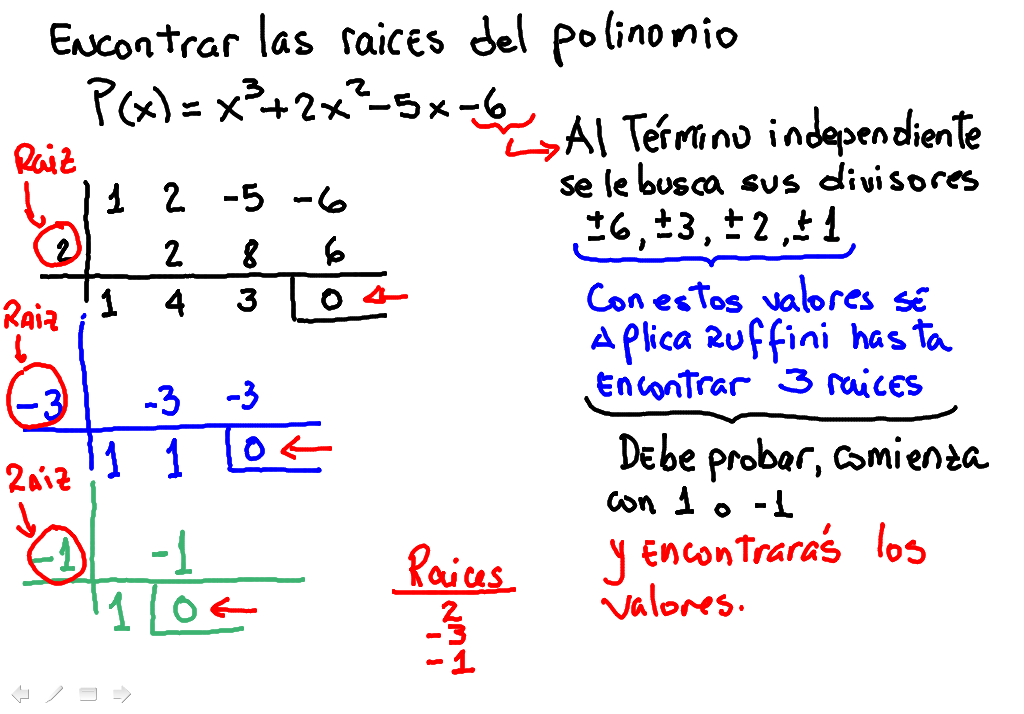 Encontrar las raices del polinomio
P(x) = x³+2x²-5x-6
Al Término independiente
se le busca sus divisores
±6, ±3, ±2, ±1
Con estos valores se
Aplica Ruffini hasta
encontrar 3 raices
Debe probar, comienza
con 1 o -1
y encontrarás los
valores.
Raiz
1 2 -5 -6
2 2 8 6
1 4 3 0
Raiz
-3 -3 -3
1 1 0
Raiz
-1 -1
1 0
Raices
2
-3
-1